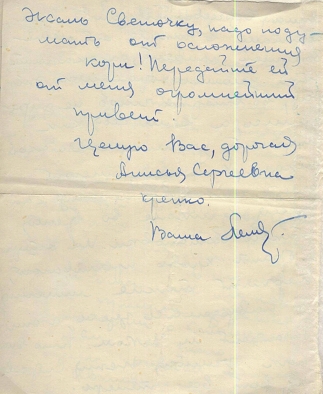 Жаль Светочку, надо поду-
мать от осложнения
кори! Передайте ей
от меня огромнейший
привет.
Целую Вас, дорогая
Алисья Сергеевна
крепко.
Ваша